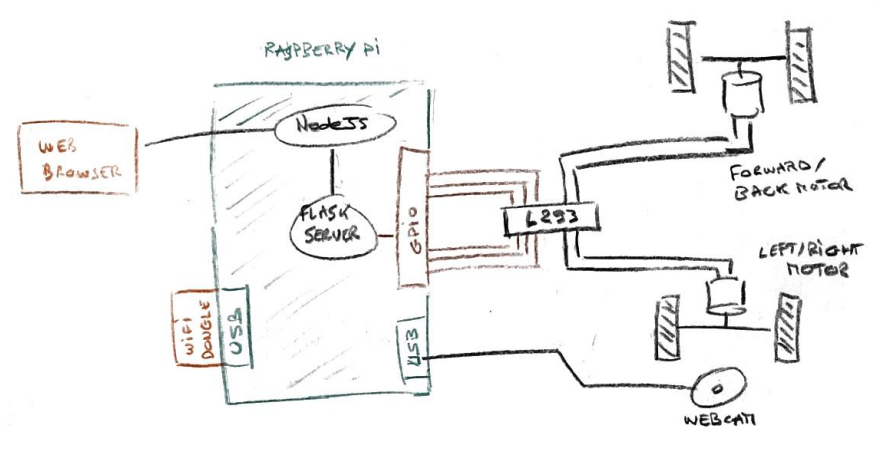 RASPBERRY Pi
NodeJS
WEB
BROWSER
FLASK
SERVER
GPIO
L293
FORWARD/
BACK MOTOR
LEFT/RIGHT
MOTOR
WIFI
DONGLE
USB
USB
WEBCAM